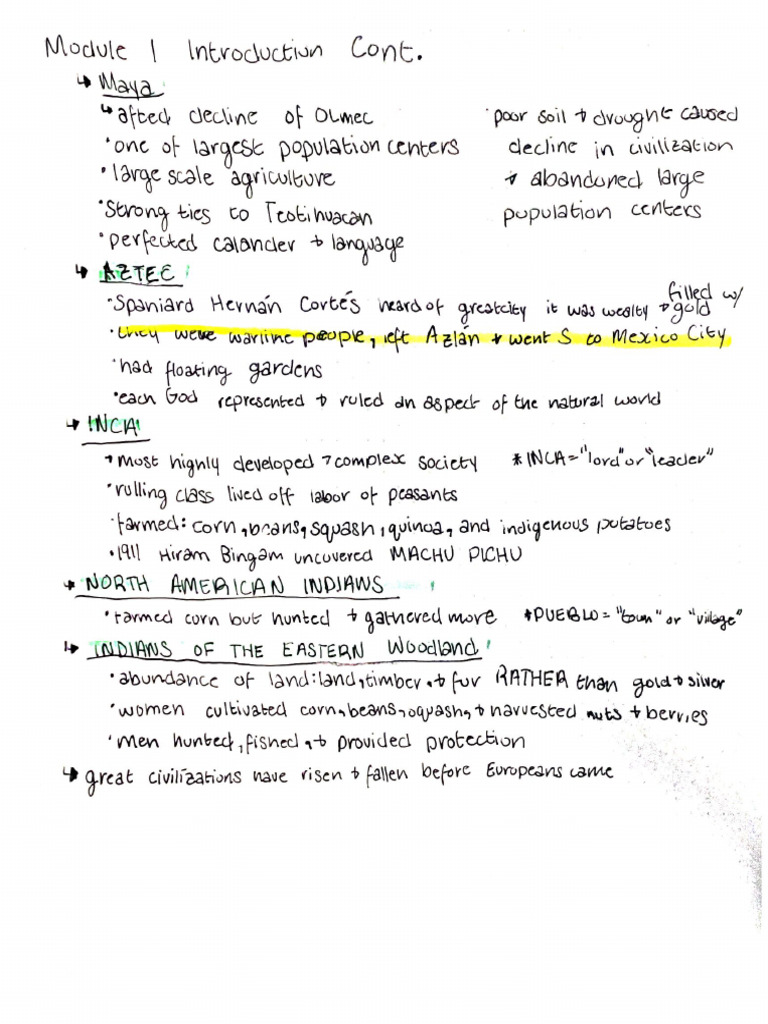 Module 1 Introduction Cont.
↳ Maya
↳ after decline of Olmec
· one of largest population centers
· large scale agriculture
· strong ties to Teotihuacan
· perfected calander + language
· poor soil + drought caused
decline in civilization
+ abandoned large
population centers
↳ AZTEC
· Spaniard Hernán Cortés heard of great city it was wealty + filled w/ gold
· they were warlike people, left Azlán + went S to Mexico City
· had floating gardens
· each God represented + ruled an aspect of the natural world
↳ INCA
· most highly developed + complex society *INCA = "lord" or "leader"
· rulling class lived off labor of peasants
· farmed: corn, beans, squash, quinoa, and indigenous potatoes
· 1911 Hiram Bingam uncovered MACHU PICHU
↳ NORTH AMERICAN INDIANS
· farmed corn but hunted + gathered more *PUEBLO = "town" or "village"
↳ INDIANS OF THE EASTERN Woodland
· abundance of land: land, timber, + fur RATHER than gold + silver
· women cultivated corn, beans, squash, + harvested nuts + berries
· men hunted, fished, + provided protection
↳ great civilizations have risen + fallen before Europeans came